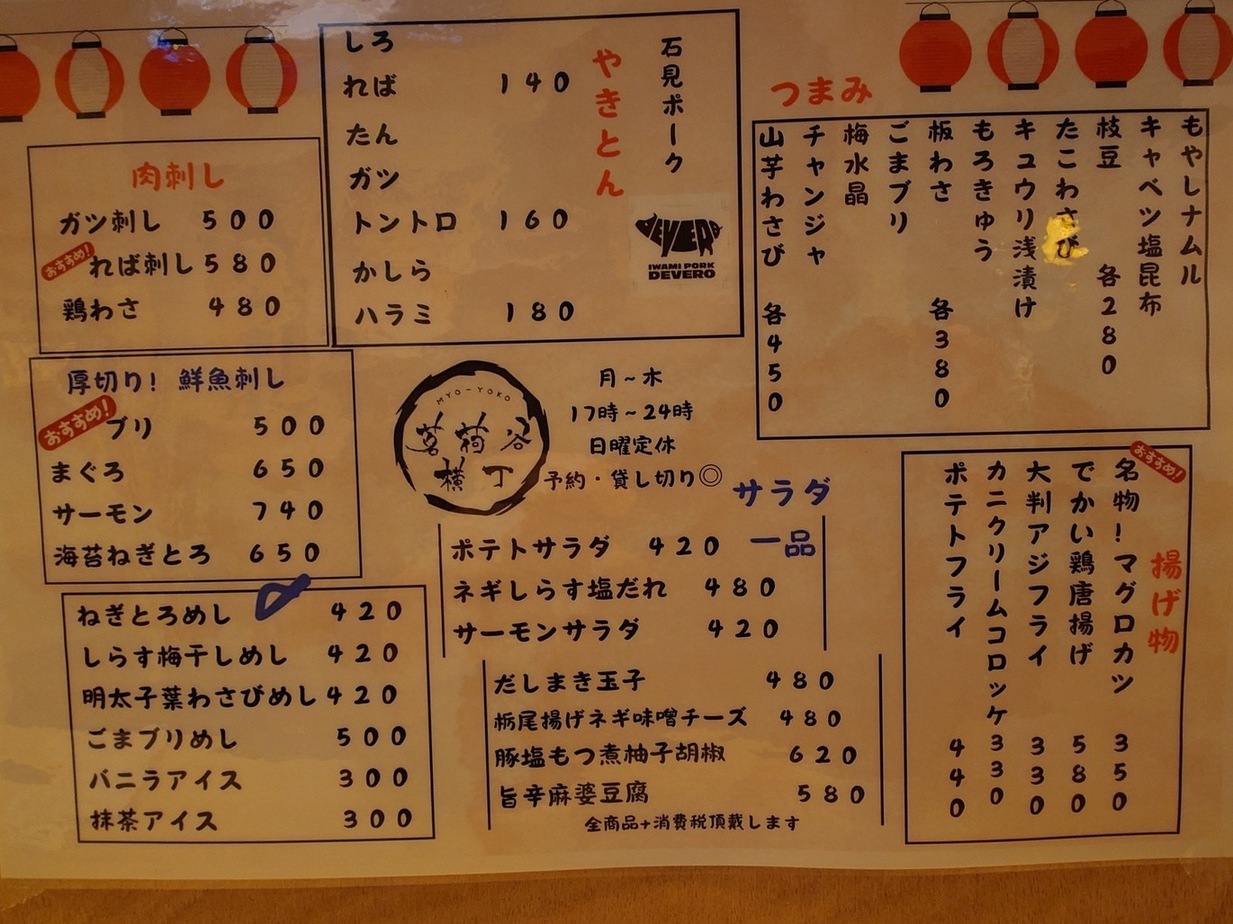 肉刺し
ガツ刺し 500
おすすめ!
れば刺し 580
鶏わさ 480
厚切り! 鮮魚刺し
おすすめ!
ブリ 500
まぐろ 650
サーモン 740
海苔ねぎとろ 650
ねぎとろめし 420
しらす梅干しめし 420
明太子葉わさびめし 420
ごまブリめし 500
バニラアイス 300
抹茶アイス 300
石見ポーク
やきとん
しろ
れば 140
たん
ガツ
トントロ 160
かしら
ハラミ 180
DEVERO
IWAMI PORK
DEVERO
MYO-YOKO
茗荷谷
横丁
月~木
17時~24時
日曜定休
予約・貸し切り◎
サラダ
一品
ポテトサラダ 420
ネギしらす塩だれ 480
サーモンサラダ 420
だしまき玉子 480
栃尾揚げネギ味噌チーズ 480
豚塩もつ煮柚子胡椒 620
旨辛麻婆豆腐 580
全商品+消費税頂戴します
つまみ
もやしナムル
キャベツ塩昆布
枝豆 各280
たこわさび
キュウリ浅漬け
もろきゅう
板わさ 各380
ごまブリ
梅水晶
チャンジャ
山芋わさび 各450
おすすめ!
揚げ物
名物!マグロカツ 350
でかい鶏唐揚げ 580
大判アジフライ 330
カニクリームコロッケ 330
ポテトフライ 440